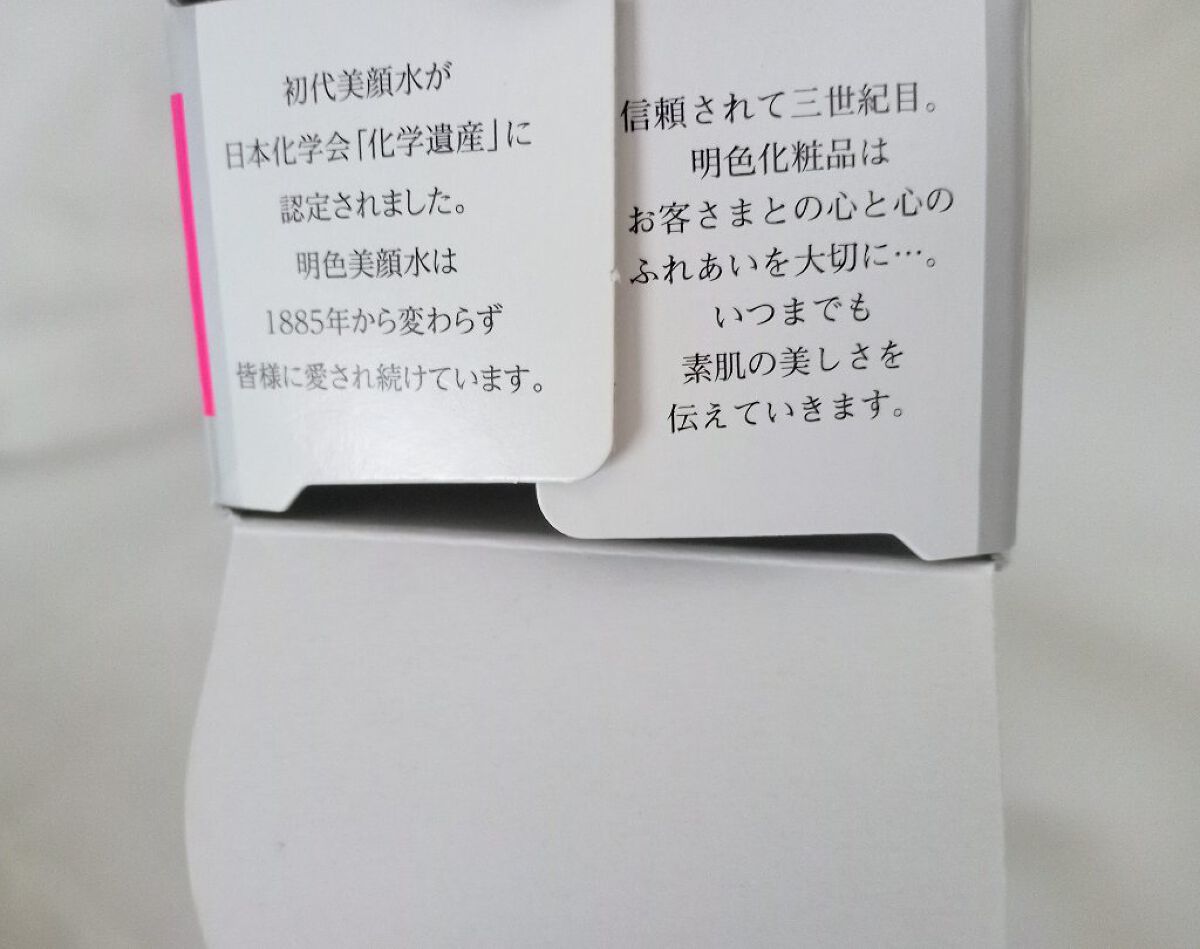 初代美顔水が
日本化学会「化学遺産」に
認定されました。
明色美顔水は
1885年から変わらず
皆様に愛され続けています。
信頼されて三世紀目。
明色化粧品は
お客さまとの心と心の
ふれあいを大切に…。
いつまでも
素肌の美しさを
伝えていきます。